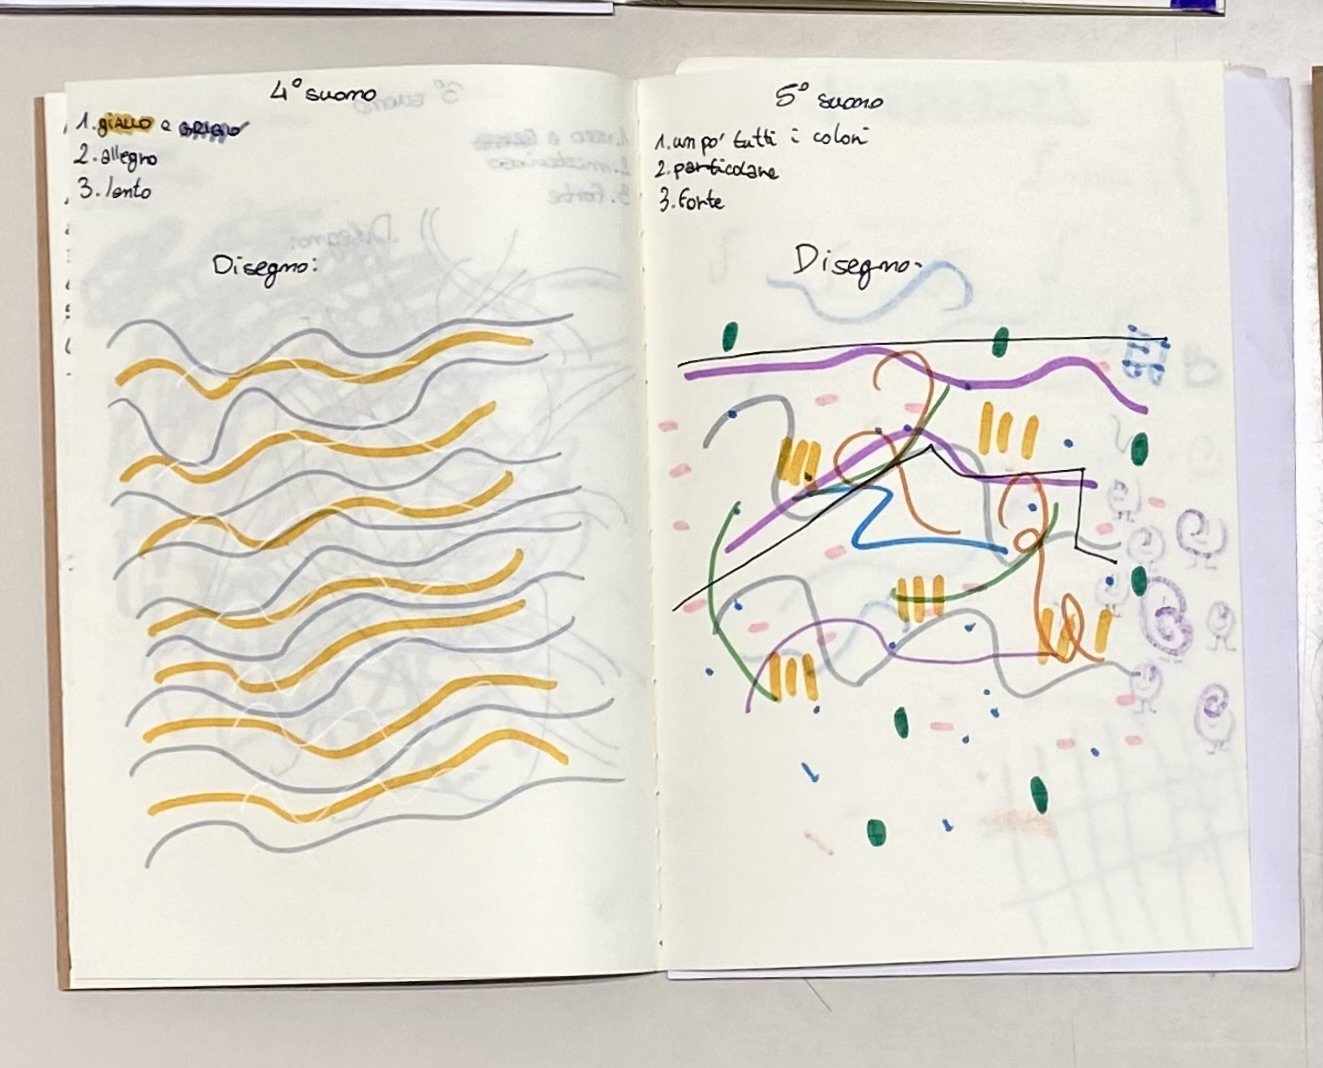 4° suono
1. giallo e GRIGIO
2. allegro
3. lento
Disegno:
5° suono
1. un po' tutti i colori
2. particolare
3. forte
Disegno: